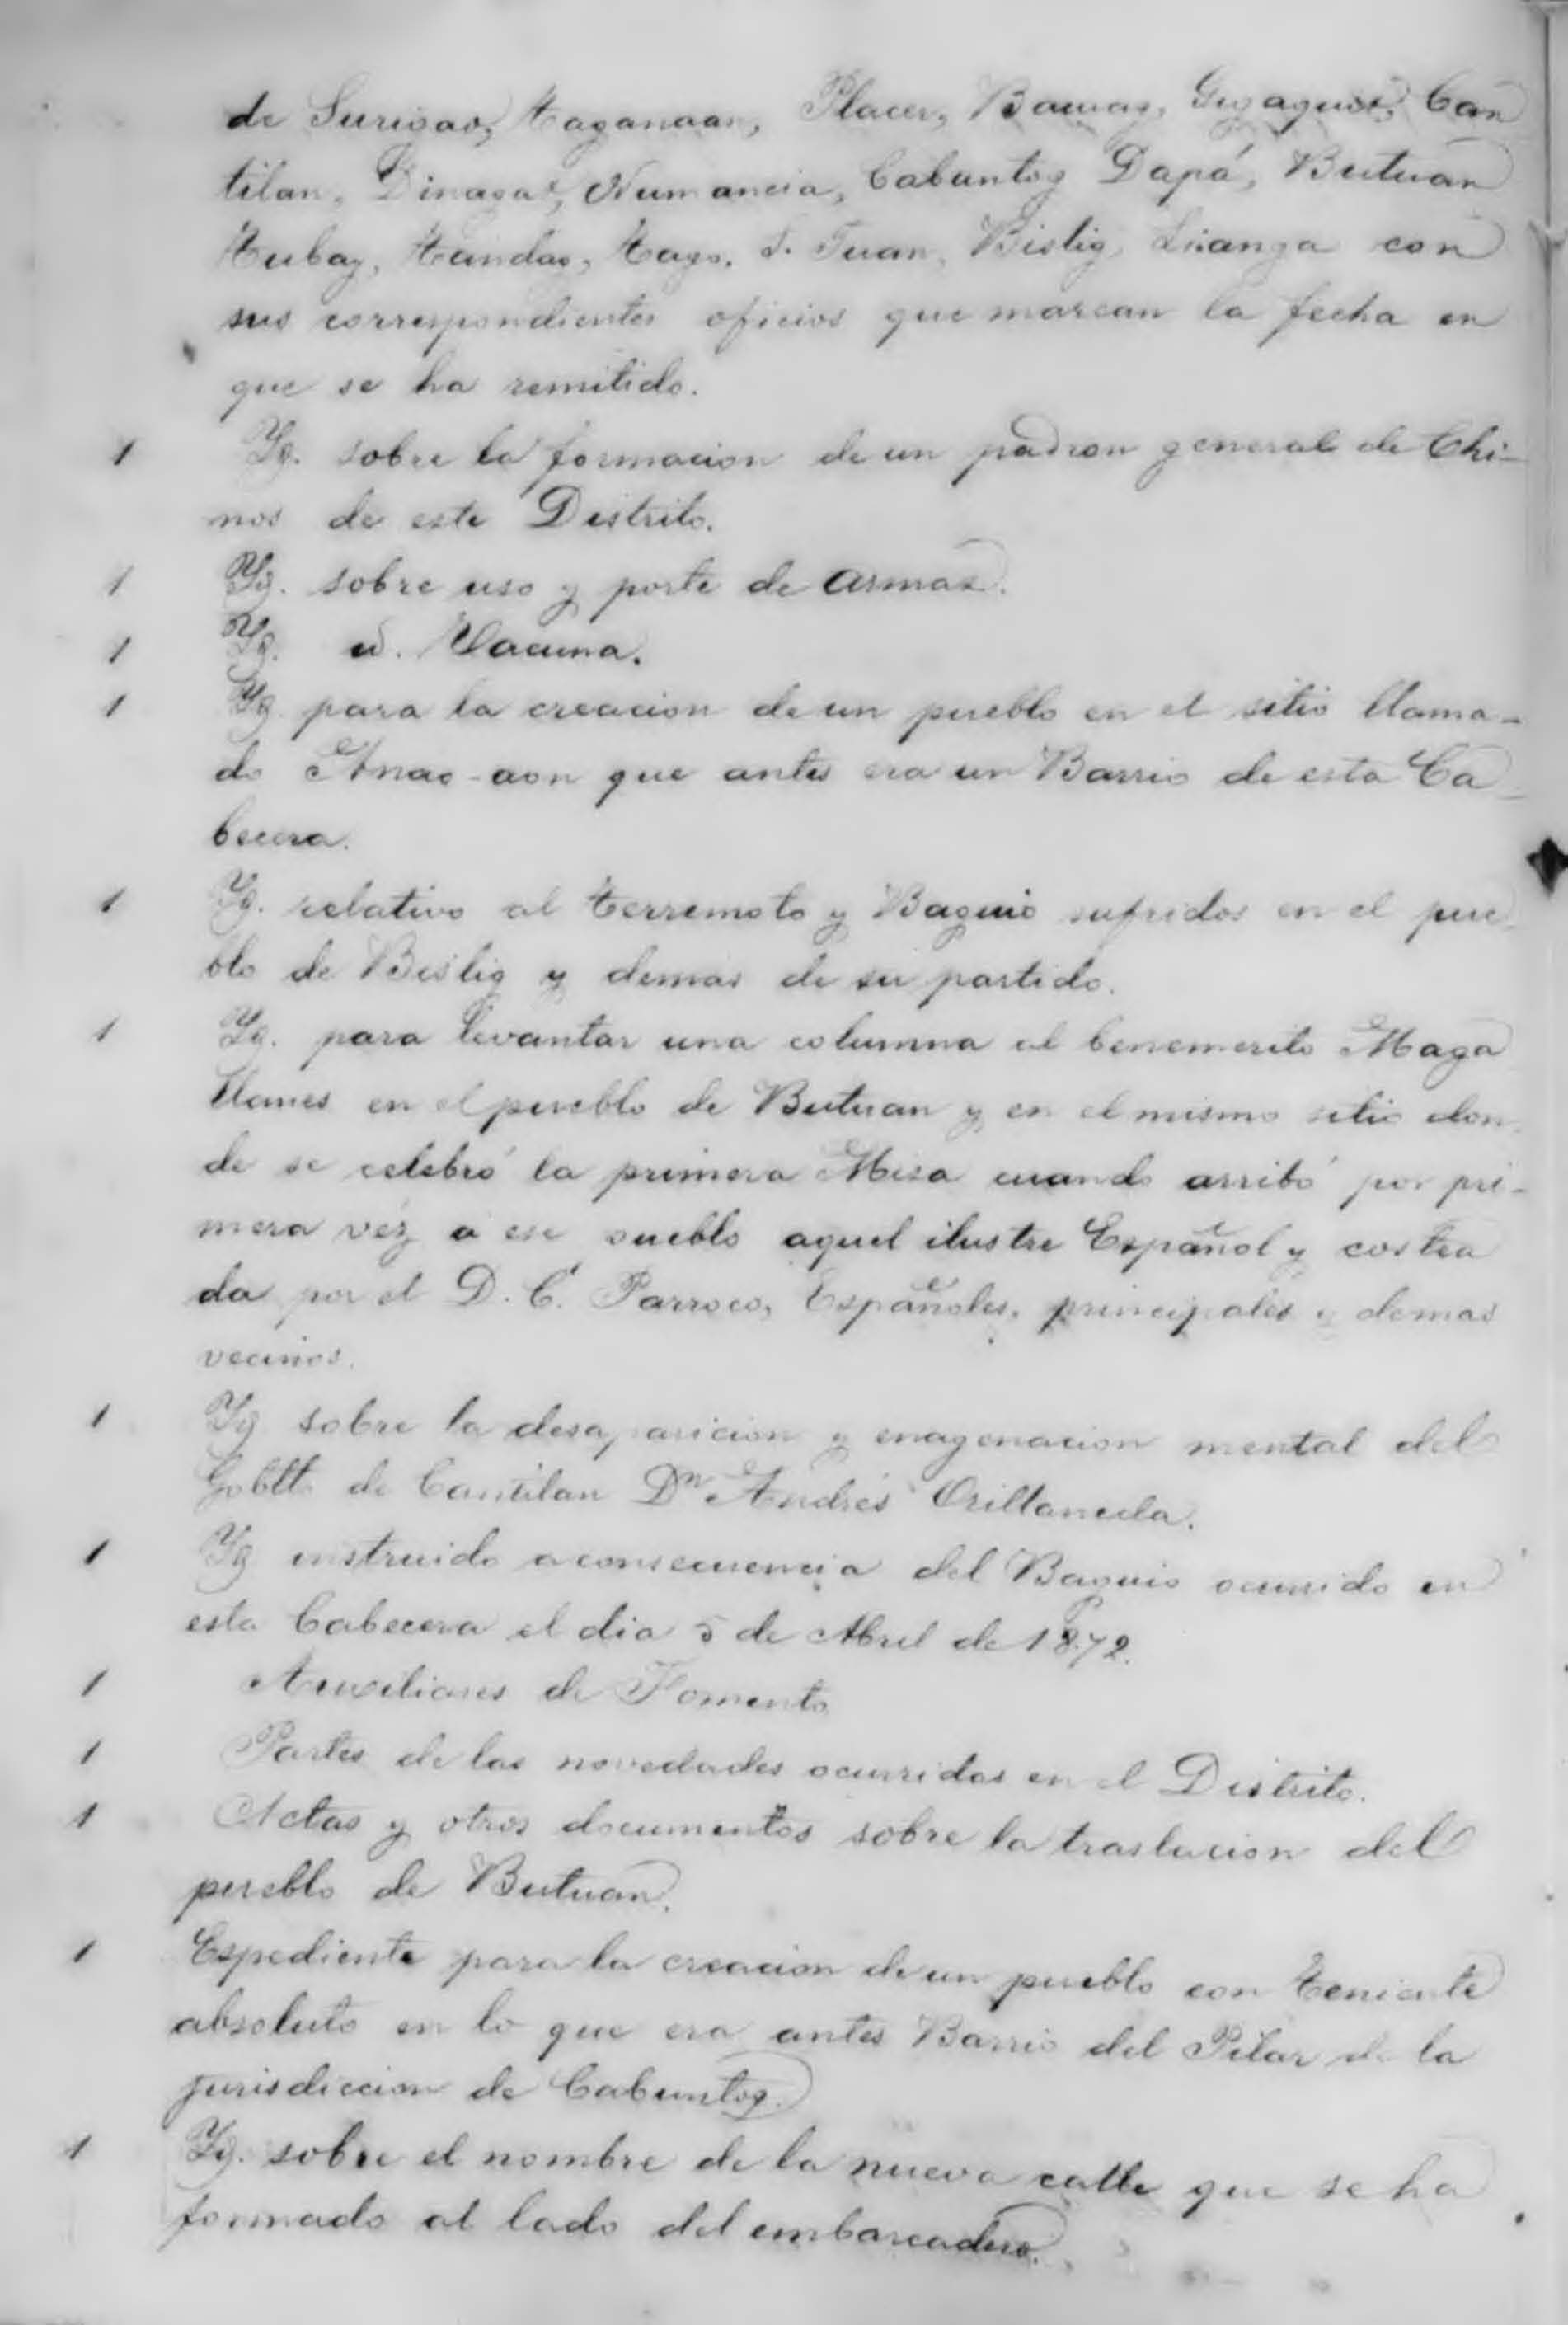 de Surigao, Taganaan, Placer, Bacuag, Gigaquit, Can
tilan, Dinagat, Numancia, Cabuntog Dapá, Butuan
Tubay, Tandag, Tago, S. Juan, Bislig, Lianga con
sus correspondientes oficios que marcan la fecha en
que se ha remitido.
1 Yg. sobre la formacion de un padron general de Chi-
nos de este Distrito.
1 Yg. sobre uso y porte de armas.
1 Yg. id. Vacuna.
1 Yg. para la creacion de un pueblo en el sitio llama-
do Anao-aon que antes era un Barrio de esta Ca-
becera.
1 Yg. relativo al terremoto y Baguio sufridos en el pue
blo de Bislig y demas de su partido.
1 Yg. para levantar una columna al benemerito Maga
llanes en el pueblo de Butuan y en el mismo sitio don
de se celebró la primera Misa cuando arribó por pri-
mera véz a ese pueblo aquel ilustre Español y costea
da por el D. C. Parroco, Españoles, principales y demas
vecinos.
1 Yg sobre la desaparicion y enagenacion mental del
Goblló de Cantilan Dn Andrés Orillaneda.
1 Yg instruido a consecuencia del Baguio ocurrido en
esta Cabecera el dia 5 de Abril de 1872.
1 Auxiliares de Fomento
1 Partes de las novedades ocurridas en el Distrito.
1 Actas y otros documentos sobre la traslacion del
pueblo de Butuan.
1 Espediente para la creacion de un pueblo con teniente
absoluto en lo que era antes Barrio del Pilar de la
jurisdiccion de Cabuntog.
1 Yg. sobre el nombre de la nueva calle que se ha
formado al lado del embarcadero.